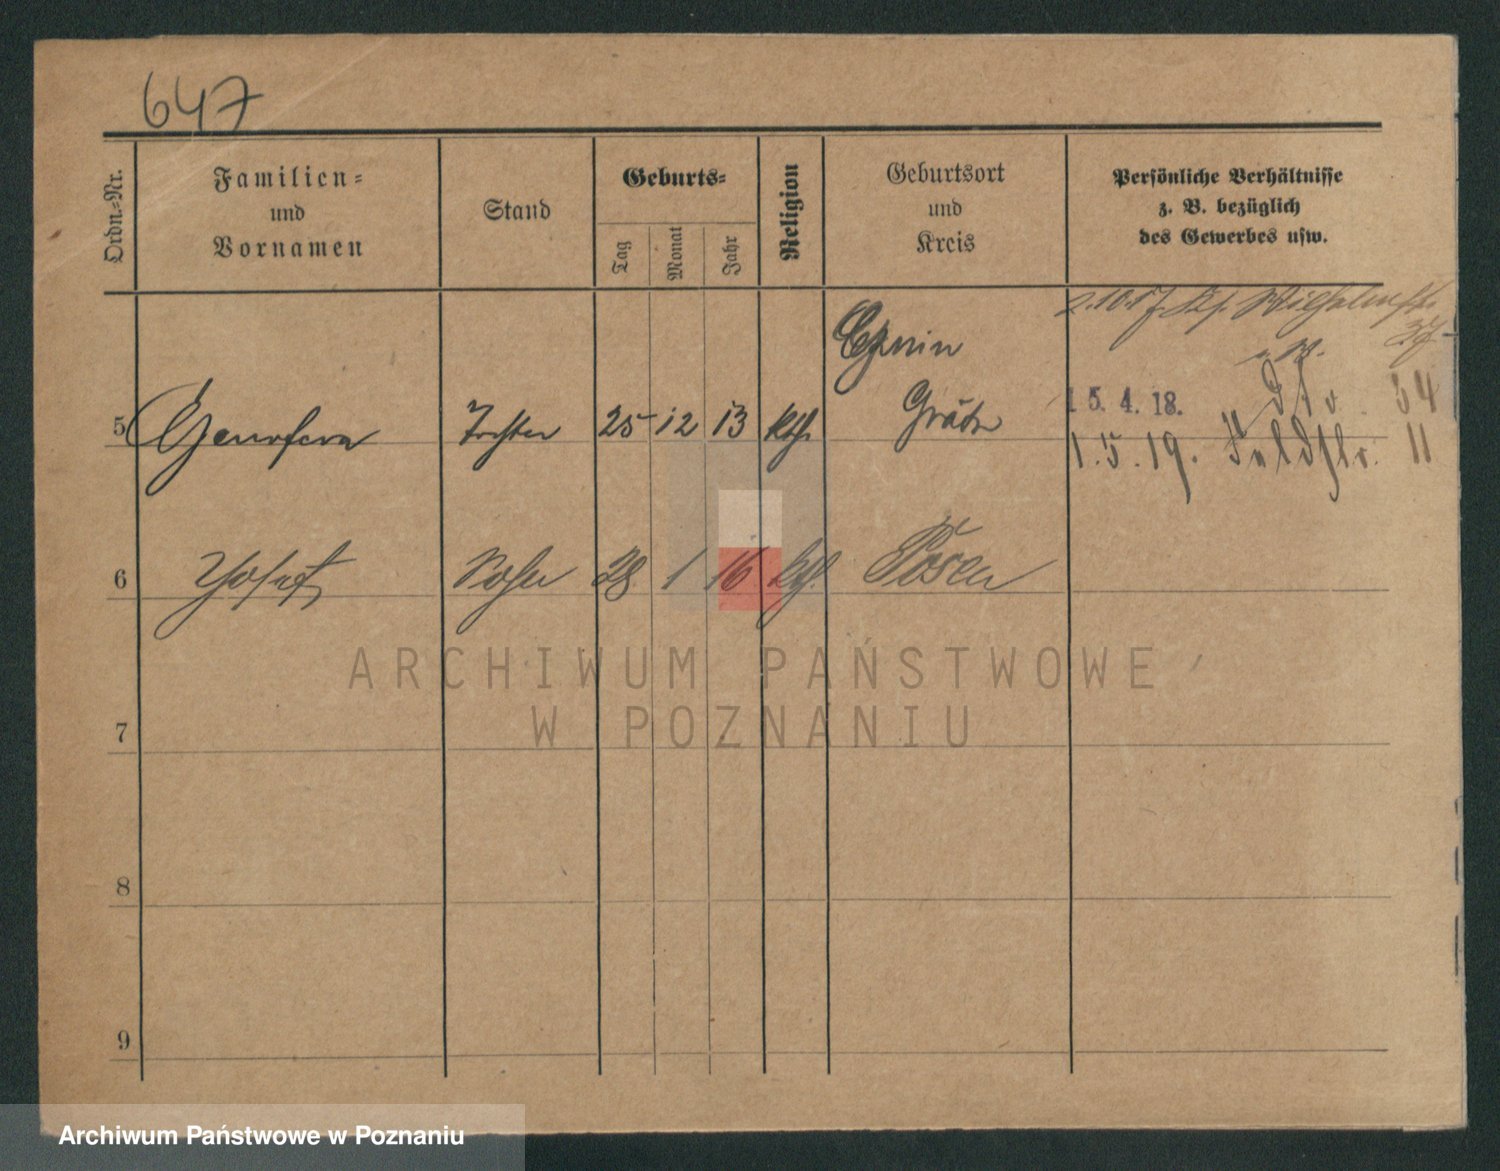 647
Ordn.-Nr.
Familien-
und
Vornamen
Stand
Geburts-
Tag
Monat
Jahr
Religion
Geburtsort
und
Kreis
Persönliche Verhältnisse
z. B. bezüglich
des Gewerbes usw.
2.10.17.
37
5 Genofeva Tochter 25 12 13 kth. Grätz
15. 4. 18. dto. 34
1.5.19. Feldstr. 11
6 Josef Sohn 28 1 16 kth. Posen
ARCHIWUM PAŃSTWOWE
W POZNANIU
7
8
9
Archiwum Państwowe w Poznaniu